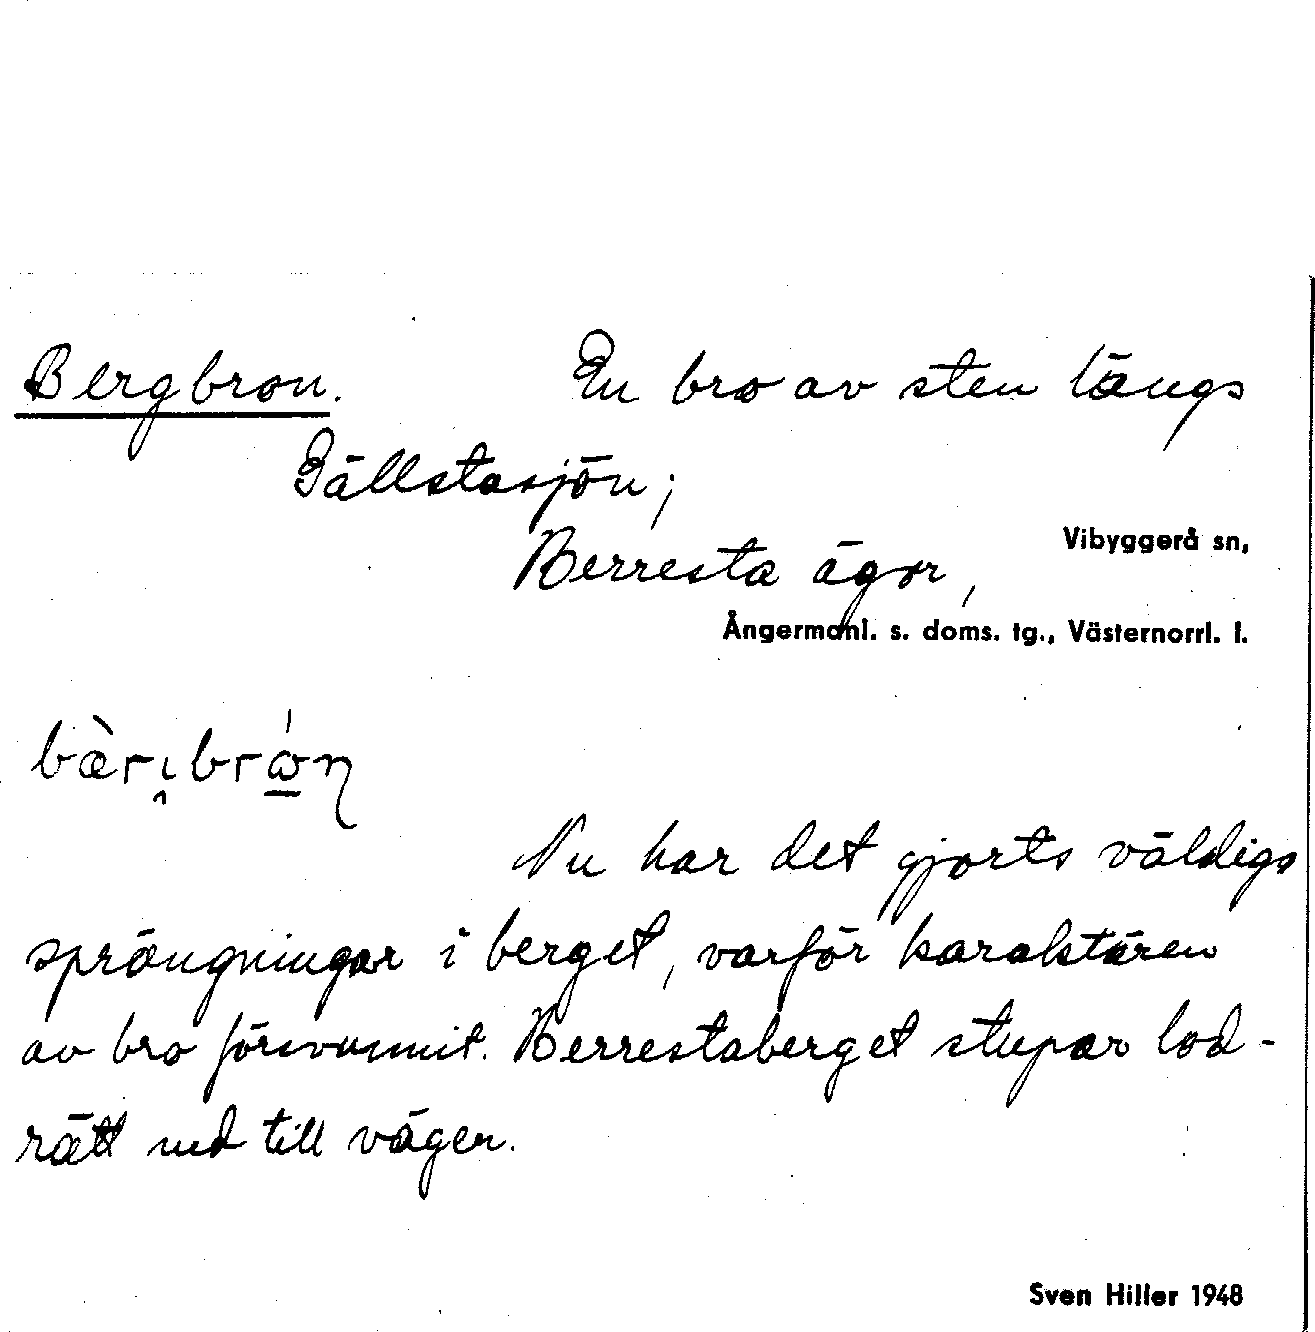 Bergbron. En bro av sten längs
Gällstasjön;
Vibyggerå sn,
Berresta ägor,
Ångermanl. s. doms. tg., Västernorrl. l.
bæ̀ribrǿn
Nu har det gjorts väldiga
sprängningar i berget, varför karaktären
av bro försvunnit. Berrestaberget stupar lod-
rätt ned till vägen.
Sven Hiller 1948